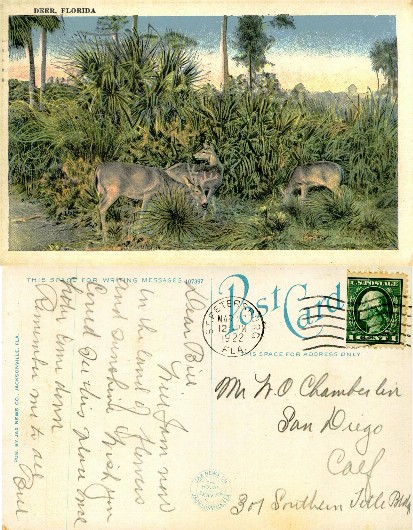 DEER, FLORIDA
THIS SPACE FOR WRITING MESSAGES 107397
Post Card
THIS SPACE FOR ADDRESS ONLY
ST. PETERSBURG
MAY
12 M
1922
FLA.
U.S. POSTAGE
1 CENT 1
Mr W O Chamberlin
San Diego
Calf
301 Southern Title Bldg
Dear Bill
Here I am now
in the land of flowers
and sunshine
Could see this place once
Remember me to all
PUB. BY JAX NEWS CO., JACKSONVILLE, FLA.